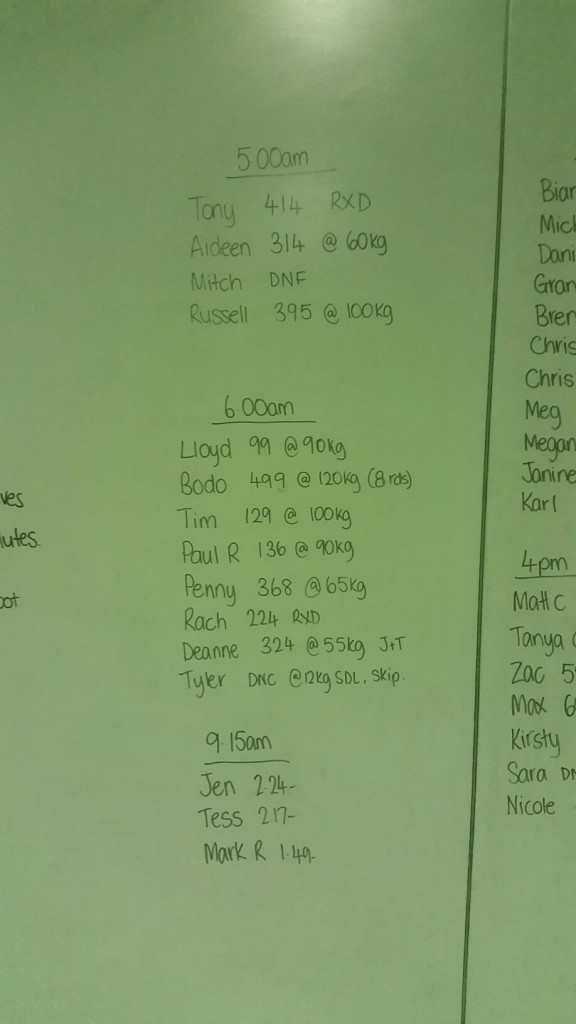 ves
utes.
oot
5.00am
Tony 414 RXD
Aideen 314 @ 60kg
Mitch DNF
Russell 395 @ 100kg
6.00am
Lloyd 99 @ 90kg
Bodo 499 @ 120kg (8 rds)
Tim 129 @ 100kg
Paul R 136 @ 90kg
Penny 368 @ 65kg
Rach 224 RXD
Deanne 324 @ 55kg J+T
Tyler DNC @12kg SDL, Skip.
9.15am
Jen 2.24-
Tess 217-
Mark R 1.49-
Bian
Mich
Dani
Gran
Bren
Chris
Chris
Meg
Megan
Janine
Karl
4pm
Matt C
Tanya
Zac 5
Max 6
Kirsty
Sara DN
Nicole